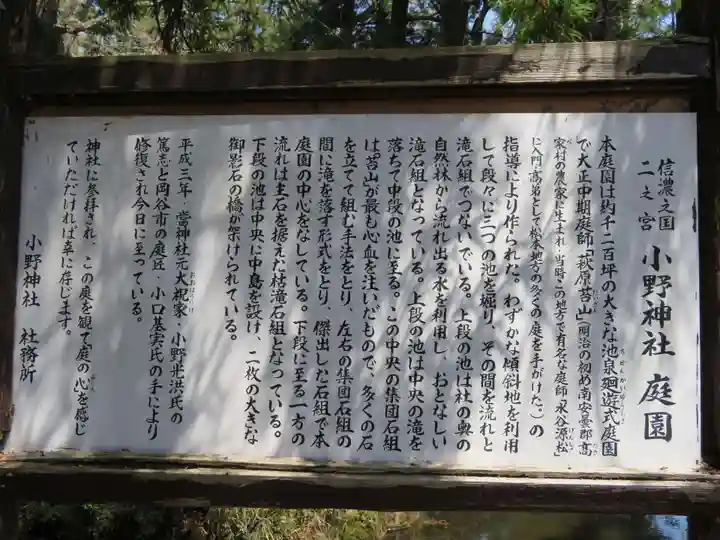 信濃之国
二之宮
小野神社 庭園
本庭園は約千二百坪の大きな池泉廻遊式庭園
で大正中期庭師「萩原苔山(明治の初め南安曇郡高
家村の農家に生まれ、当時この地方で有名な庭師「永谷源松
に入門高弟として松本地方の多くの庭を手がけた。)の
指導により作られた。わずかな傾斜地を利用
して段々に三つの池を掘り、その間を流れと
滝石組でつないでいる。上段の池は社の奥の
自然林から流れ出る水を利用し、おとなしい
滝石組となっている。上段の池は中央の滝を
落ちて中段の池に至る。この中央の集団石組
は苔山が最も心血を注いだもので、多くの石
を立てて組む手法をとり、左右の集団石組の
間に滝を落す形式をとり、傑出した石組で本
庭園の中心をなしている。下段に至る一方の
流れは主石を据えた枯滝石組となっている。
下段の池は中央に中島を設け、二枚の大きな
御影石の橋が架けられている。
平成三年・当神社元大祝家・小野光洪氏の
篤志と岡谷市の庭匠・小口基実氏の手により
修復され今日に至っている。
神社に参拝され、この庭を観て庭の心を感じ
ていただければ幸に存じます。
小野神社 社務所